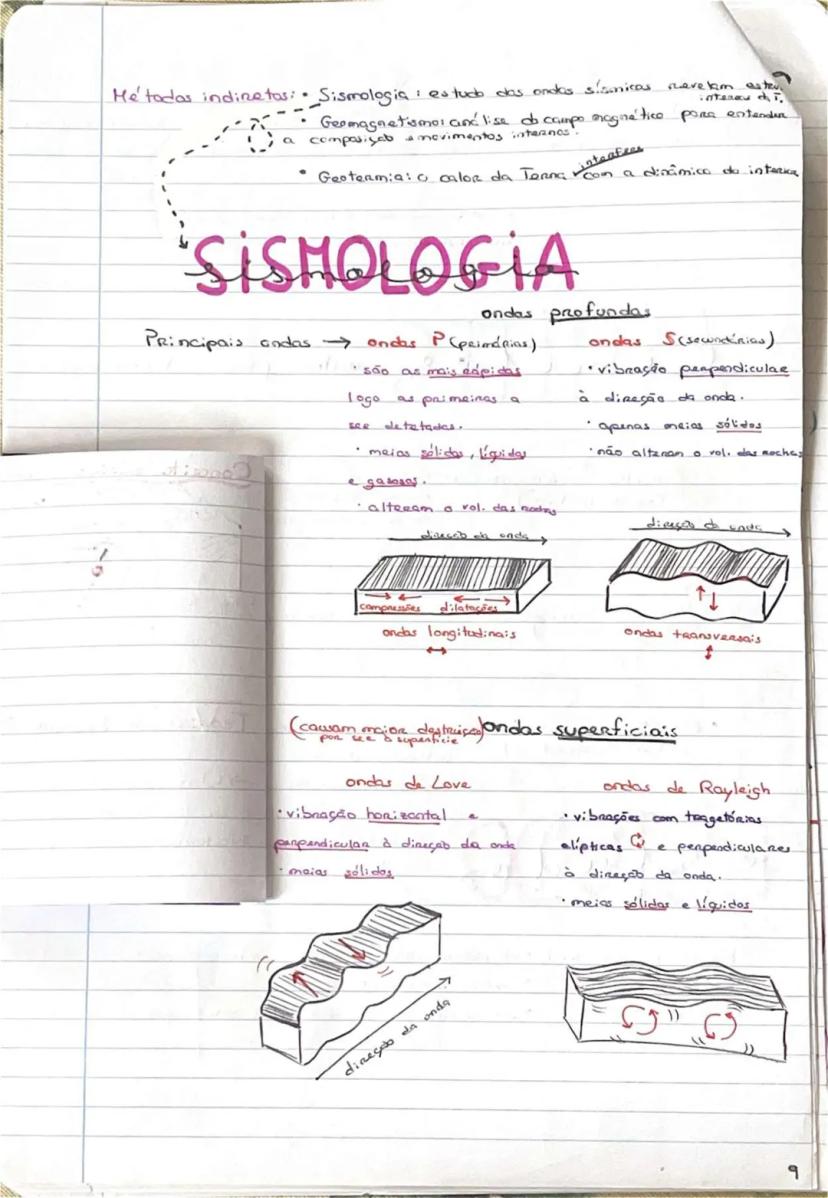 Métodos indiretos: • Sismologia: estudo das ondas sísmicas revelam estru.
internas da T.
• Geomagnetismo: análise do campo magnético para entender
a composição e movimentos internos.
interfere
• Geotermia: o calor da Terra com a dinâmica do interior
SiSMOLOGiA
sismologia
ondas profundas
Principais ondas → ondas P (primárias)
• são as mais rápidas
logo as primeiras a
ser detetadas.
• meios sólidos, líquidos
e gasosos.
• alteram o vol. das rochas
ondas S (secundárias)
• vibração perpendicular
à direção da onda.
• apenas meios sólidos
• não alteram o vol. das rochas
direção da onda
compressões dilatações
ondas longitudinais
↔
direção da onda
ondas transversais
↕
(causam maior destruição)
por ser à superfície
ondas superficiais
ondas de Love
• vibração horizontal e
perpendicular à direção da onda
• meios sólidos
ondas de Rayleigh
• vibrações com traggetórias
elípticas e perpendiculares
à direção da onda.
• meios sólidos e líquidos
direção da onda
9